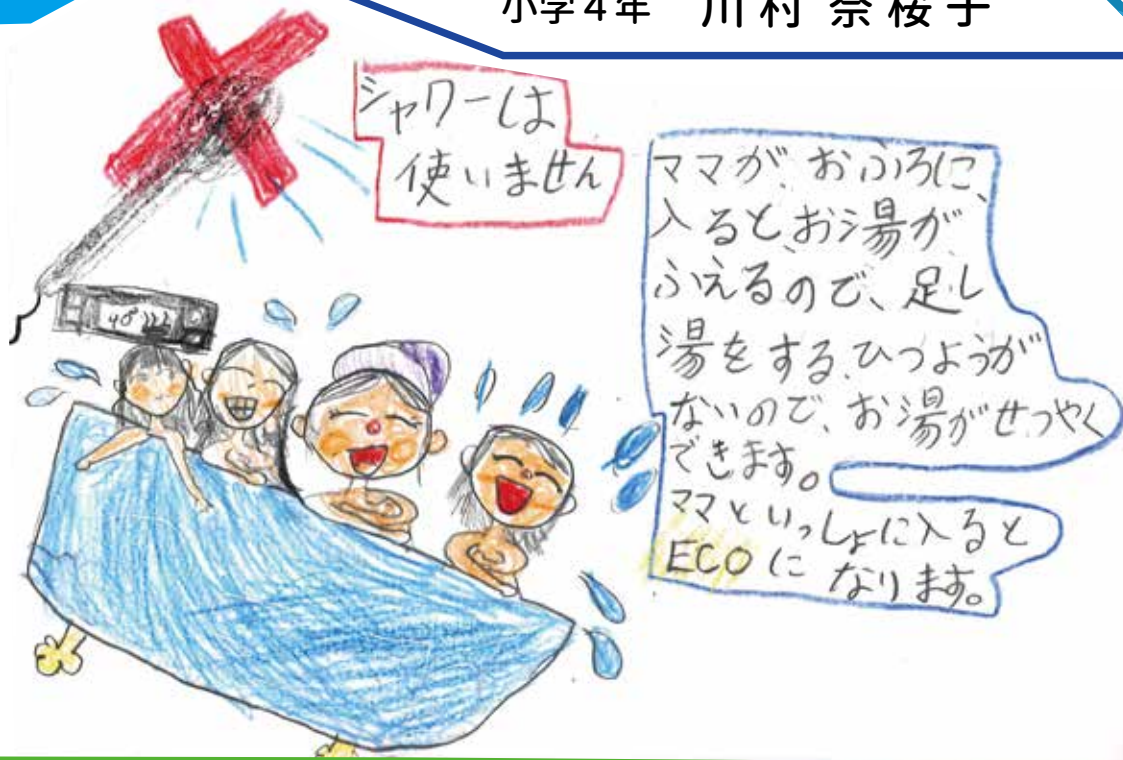 小学4年 川村奈桜子
シャワーは
使いません
ママが、おふろに、
入ると、お湯が
ふえるので、足し
湯をする、ひつようが
ないので、お湯がせつやく
できます。
ママといっしょに入ると
ECOになります。
40℃